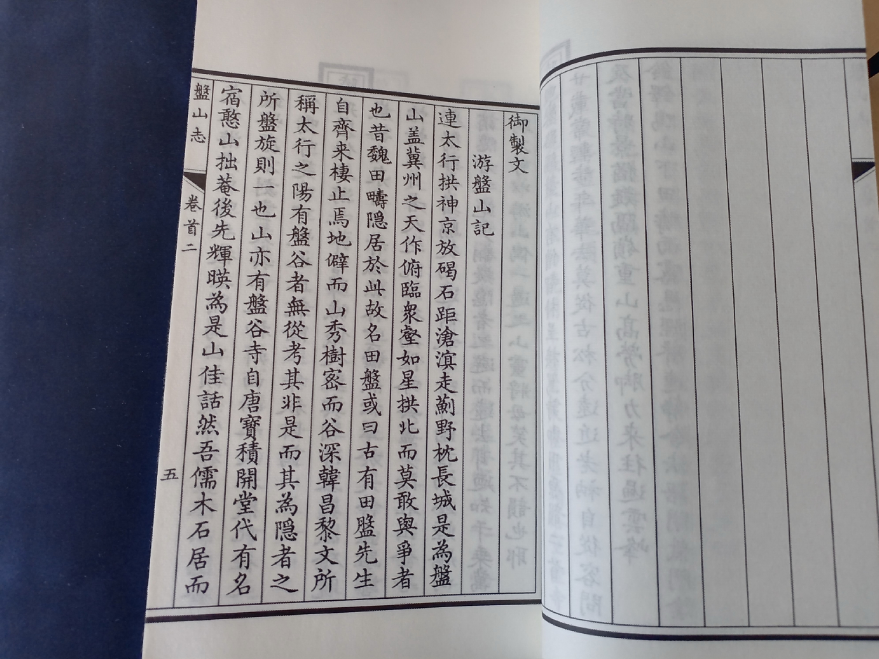 御製文
游盤山記
連太行拱神京放碣石距滄溟走薊野枕長城是為盤
山盖冀州之天作俯臨衆壑如星拱北而莫敢與爭者
也昔魏田疇隱居於此故名田盤或曰古有田盤先生
自齊来棲止焉地僻而山秀樹宻而谷深韓昌黎文所
稱太行之陽有盤谷者無從考其非是而其為隱者之
所盤旋則一也山亦有盤谷寺自唐寶積開堂代有名
宿憨山拙菴後先輝暎為是山佳話然吾儒木石居而
盤山志
卷首二
五